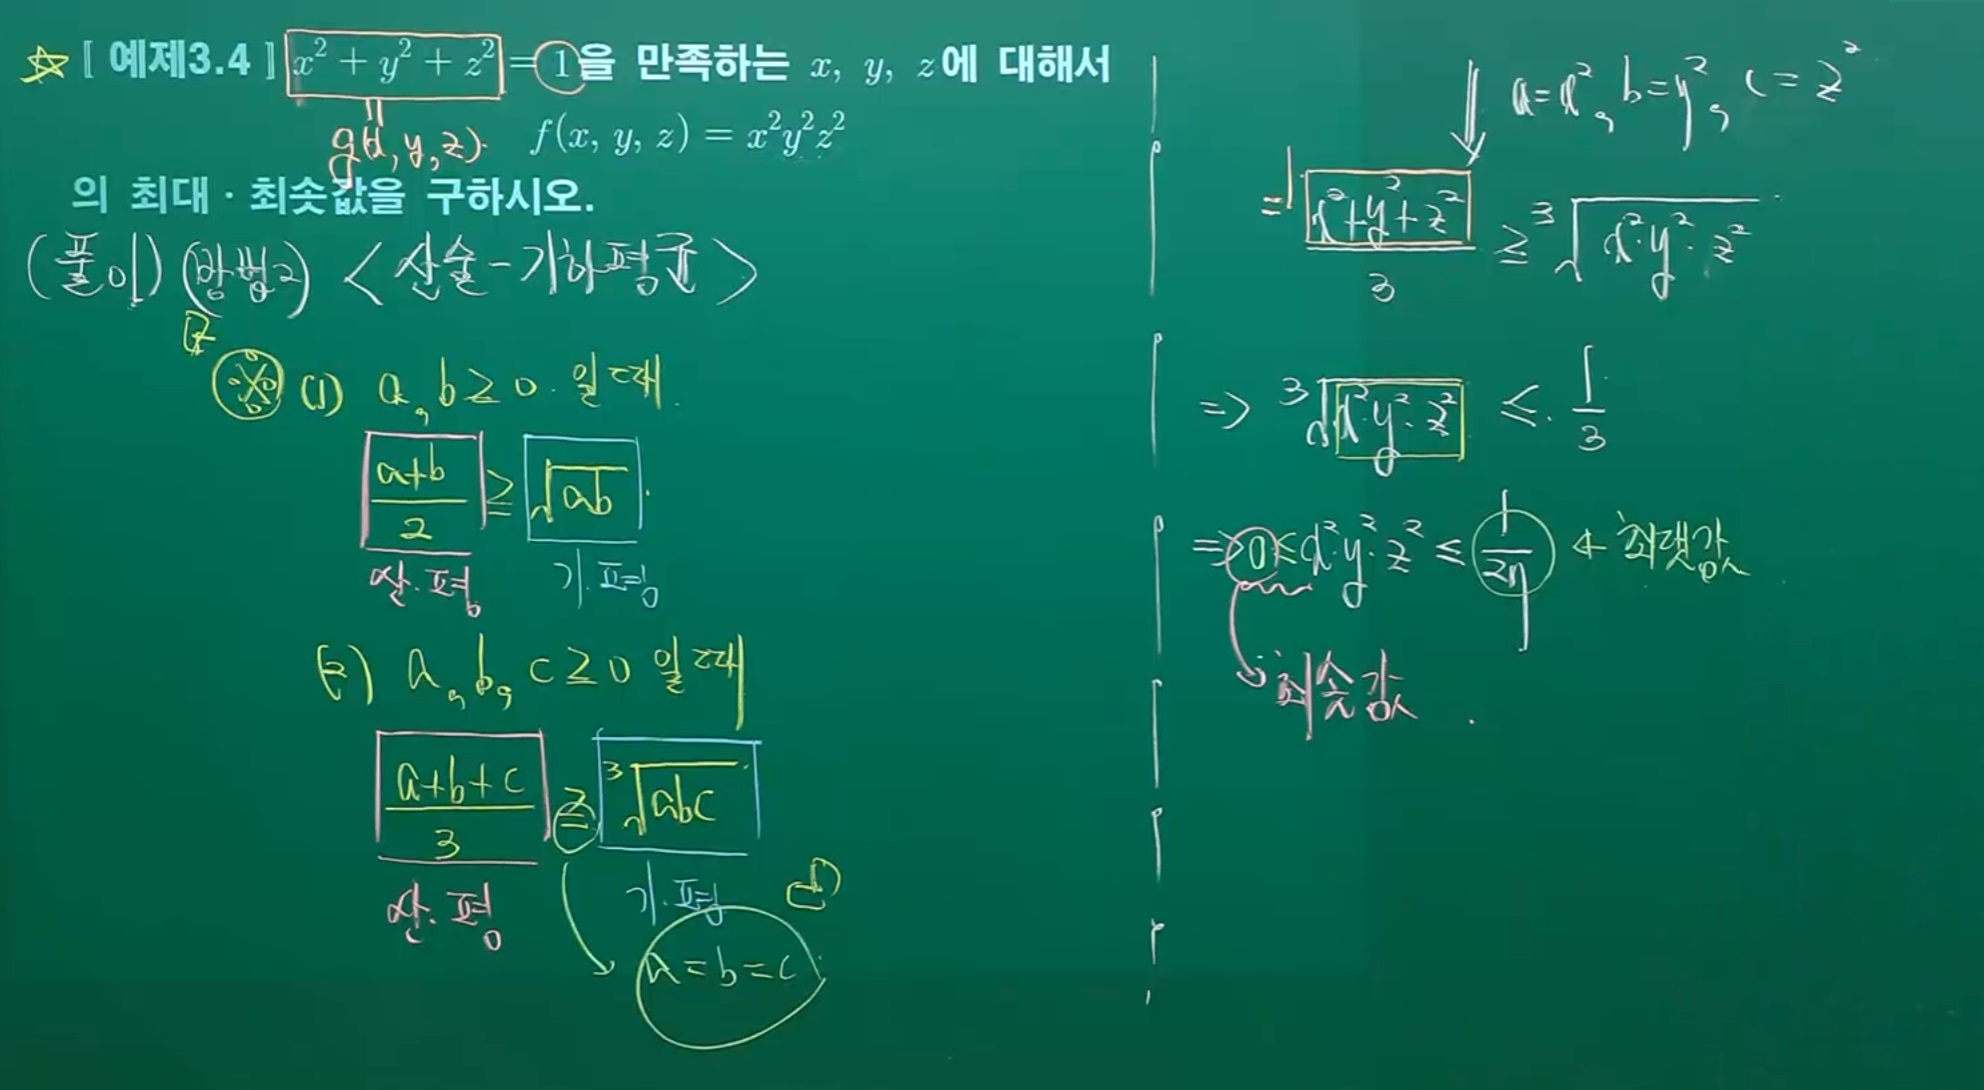 ☆ [ 예제3.4 ] x² + y² + z² = 1을 만족하는 x, y, z에 대해서
g(x, y, z)
f(x, y, z) = x²y²z²
의 최대 · 최솟값을 구하시오.
(풀이) (방법2) <산술-기하평균>
※ (1) a, b ≥ 0 일때
(a+b)/2 ≥ √ab
산.평 기.평
(2) a, b, c ≥ 0 일때
(a+b+c)/3 ≥ ³√abc
산.평 기.평
a = b = c
a = x², b = y², c = z²
1 = (x²+y²+z²)/3 ≥ ³√x²·y²·z²
=> ³√x²·y²·z² ≤ 1/3
=> 0 ≤ x²·y²·z² ≤ 1/27 ← 최댓값
최솟값